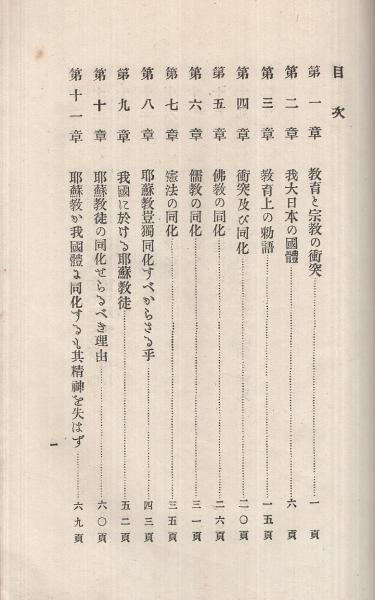 目次
第一章 教育と宗教の衝突………一頁
第二章 我大日本の國體………六頁
第三章 教育上の勅語………一五頁
第四章 衝突及び同化………二〇頁
第五章 佛教の同化………二六頁
第六章 儒教の同化………三一頁
第七章 憲法の同化………三五頁
第八章 耶蘇教豈獨同化すべからざる乎………四三頁
第九章 我國に於ける耶蘇教徒………五二頁
第十章 耶蘇教徒の同化せらるべき理由………六〇頁
第十一章 耶蘇教か我國體に同化するも其精神を失はず………六九頁
一